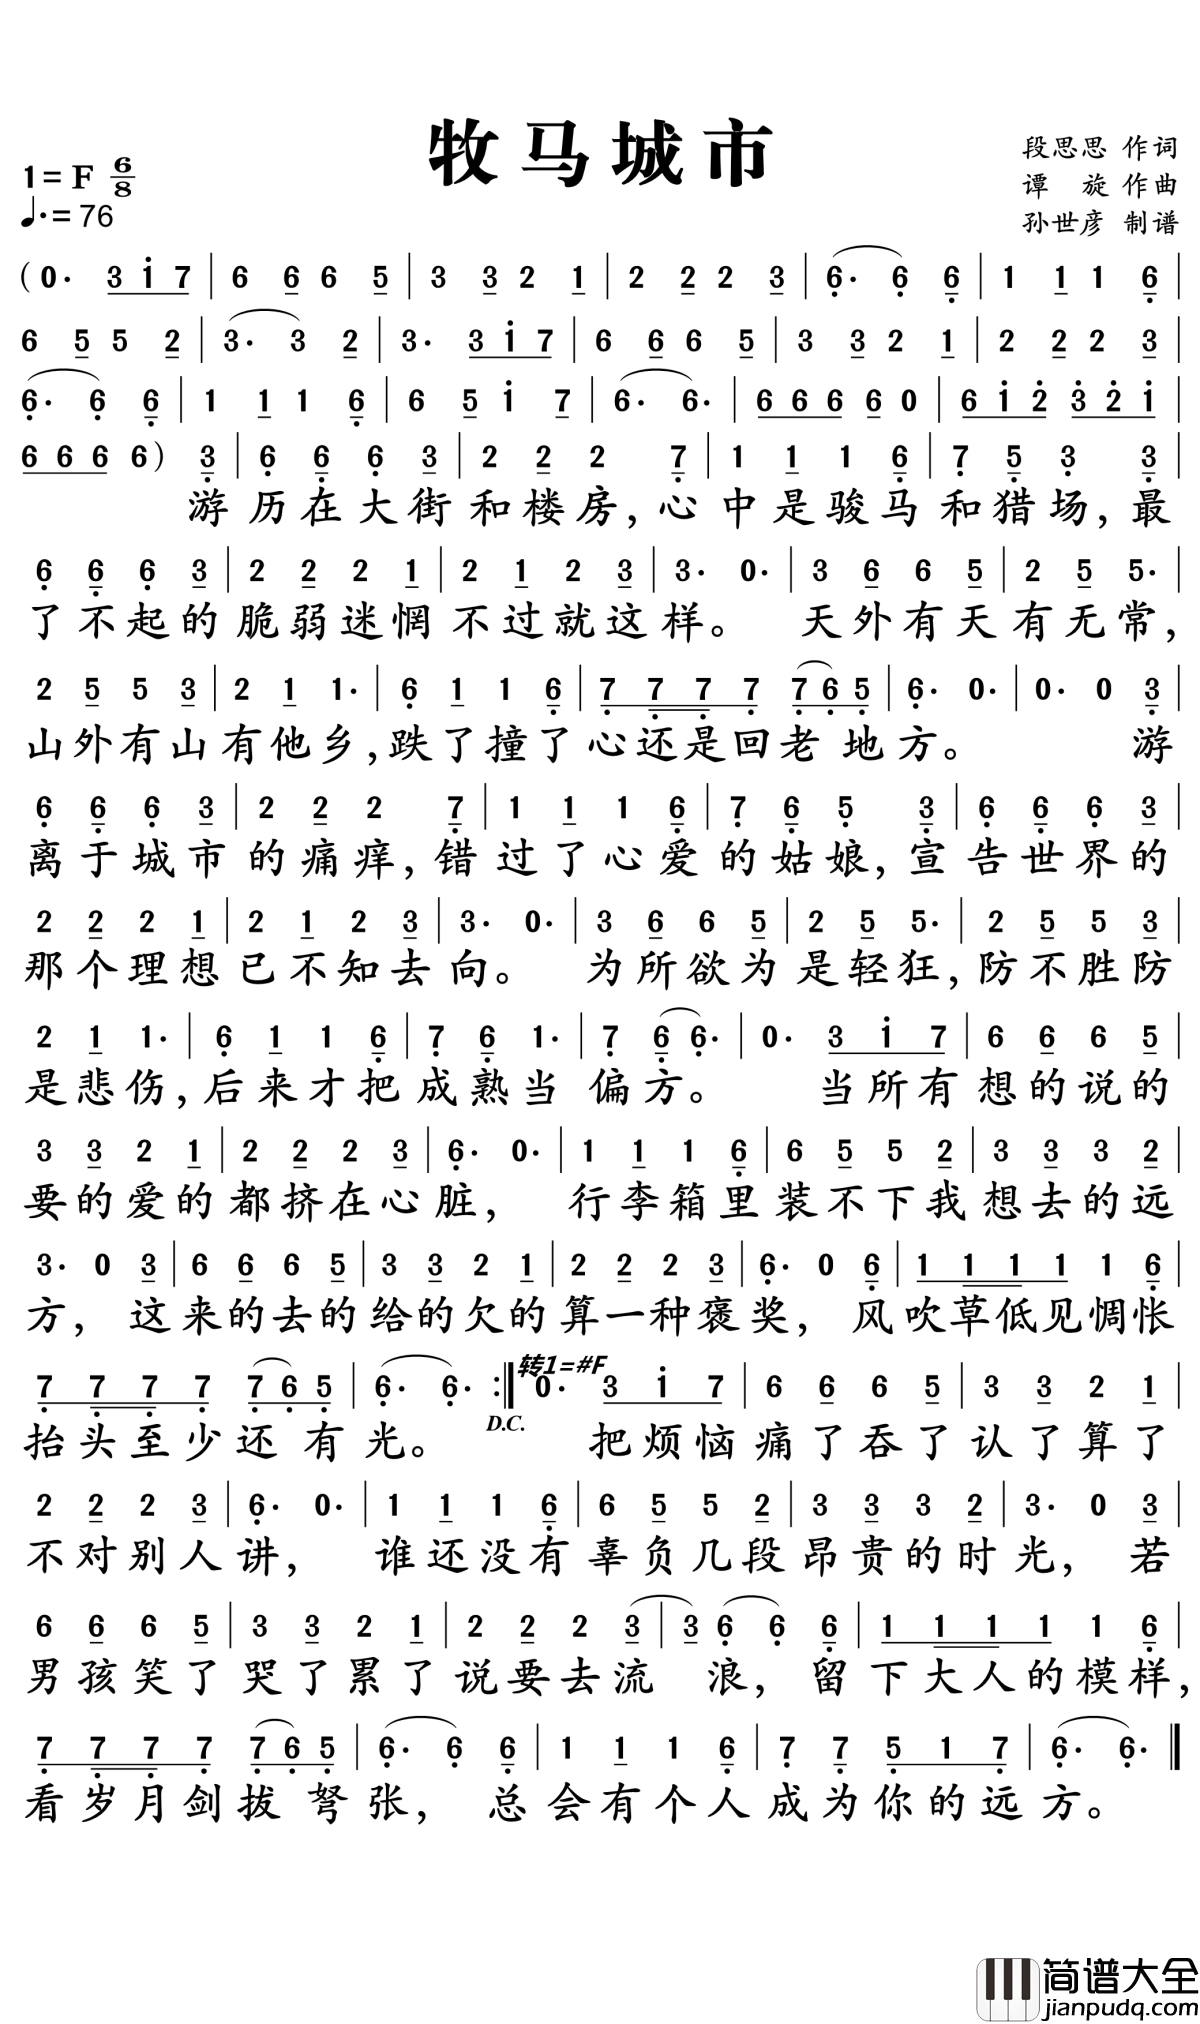 牧马城市
1=F 6/8
♩.=76
段思思 作词
谭 旋 作曲
孙世彦 制谱
(0· 3 i 7 | 6 6 6 5 | 3 3 2 1 | 2 2 2 3 | 6· 6 6 | 1 1 1 6 |
6 5 5 2 | 3· 3 2 | 3· 3 i 7 | 6 6 6 5 | 3 3 2 1 | 2 2 2 3 |
6· 6 6 | 1 1 1 6 | 6 5 i 7 | 6· 6· | 6 6 6 6 0 | 6 i 2 3 2 i |
6 6 6 6) 3 | 6 6 6 3 | 2 2 2 7 | 1 1 1 6 | 7 5 3 3 |
游历在大街和楼房,心中是骏马和猎场,最
6 6 6 3 | 2 2 2 1 | 2 1 2 3 | 3· 0· | 3 6 6 5 | 2 5 5· |
了不起的脆弱迷惘不过就这样。 天外有天有无常,
2 5 5 3 | 2 1 1· | 6 1 1 6 | 7 7 7 7 7 6 5 | 6· 0· | 0· 0 3 |
山外有山有他乡,跌了撞了心还是回老地方。 游
6 6 6 3 | 2 2 2 7 | 1 1 1 6 | 7 6 5 3 | 6 6 6 3 |
离于城市的痛痒,错过了心爱的姑娘,宣告世界的
2 2 2 1 | 2 1 2 3 | 3· 0· | 3 6 6 5 | 2 5 5· | 2 5 5 3 |
那个理想已不知去向。 为所欲为是轻狂,防不胜防
2 1 1· | 6 1 1 6 | 7 6 1· | 7 6 6· | 0· 3 i 7 | 6 6 6 5 |
是悲伤,后来才把成熟当偏方。 当所有想的说的
3 3 2 1 | 2 2 2 3 | 6· 0· | 1 1 1 6 | 6 5 5 2 | 3 3 3 2 |
要的爱的都挤在心脏, 行李箱里装不下我想去的远
3· 0 3 | 6 6 6 5 | 3 3 2 1 | 2 2 2 3 | 6· 0 6 | 1 1 1 1 1 6 |
方,这来的去的给的欠的算一种褒奖,风吹草低见惆怅
转1=#F
7 7 7 7 7 6 5 | 6· 6· :‖ 0· 3 i 7 | 6 6 6 5 | 3 3 2 1 |
D.C.
抬头至少还有光。 把烦恼痛了吞了认了算了
2 2 2 3 | 6· 0· | 1 1 1 6 | 6 5 5 2 | 3 3 3 2 | 3· 0 3 |
不对别人讲, 谁还没有辜负几段昂贵的时光,若
6 6 6 5 | 3 3 2 1 | 2 2 2 3 | 3 6 6 6 | 1 1 1 1 1 6 |
男孩笑了哭了累了说要去流浪,留下大人的模样,
7 7 7 7 7 6 5 | 6· 6 6 | 1 1 1 6 | 7 7 5 1 7 | 6· 6· ‖
看岁月剑拔弩张,总会有个人成为你的远方。
简谱大全
jianpudq.com